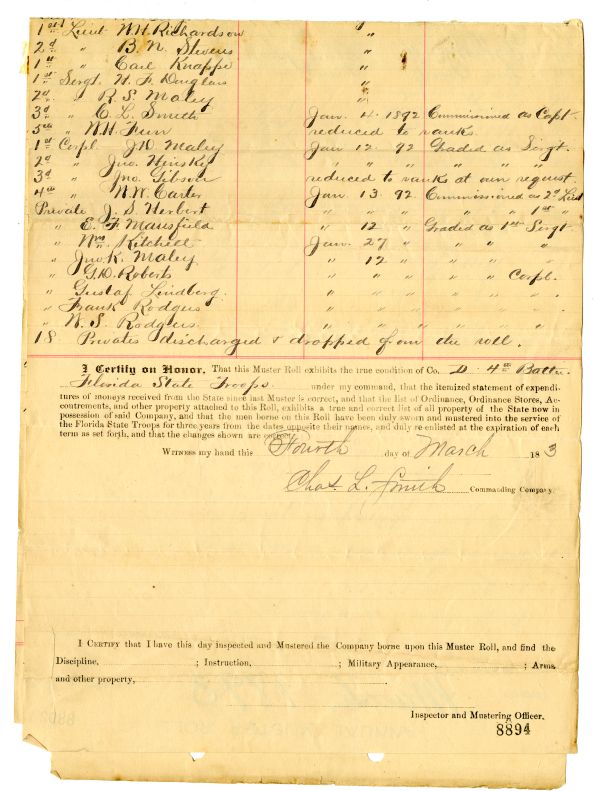 1st Lieut W.H. Richardson "
2d " B. N. Stevens "
1st " Carl Knappe "
1st Sergt. H. F. Douglass "
2d " R. S. Maley "
3d " C. L. Smith Jan. 4. 1892 Commissioned as Capt.
5th " W.H. reduced to ranks
1st Corpl J.D. Maley Jan 12. 92 Graded as Sergt.
2d " Jno. " " " " " "
3d " Jno. Gibson reduced to ranks at own request
4th " W.W. Carter Jan 13. 92 Commissioned as 2d Lieut
Private J. S. Herbert " " " " " 1st "
" E. F. Mansfield " 12 " Graded as 1st Sergt
" Wm. Kitchell Jan. 27 " " " "
" Jno. K. Maley " 12 " " " "
" G.D. Roberts " " " " " Corpl.
" Gustaf Lindberg. " " " " " "
" Frank Rodgers " " " " " "
" W. S. Rodgers " " " " " "
18 Privates discharged & dropped from the roll.
I Certify on Honor. That this Muster Roll exhibits the true condition of Co. D. 4th Battn.
Florida State Troops under my command, that the itemized statement of expendi-
tures of moneys received from the State since last Muster is correct, and that the list of Ordinance, Ordinance Stores, Ac-
contrements, and other property attached to this Roll, exhibits a true and correct list of all property of the State now in
possession of said Company, and that the men borne on this Roll have been duly sworn and mustered into the service of
the Florida State Troops for three years from the dates opposite their names, and duly re-enlisted at the expiration of each
term as set forth, and that the changes shown are correct.
Witness my hand this Fourth day of March 18 3
Chas. L. Smith Commanding Company.
I Certify that I have this day inspected and Mustered the Company borne upon this Muster Roll, and find the
Discipline, ; Instruction, ; Military Appearance, ; Arms
and other property,
Inspector and Mustering Officer.
8894